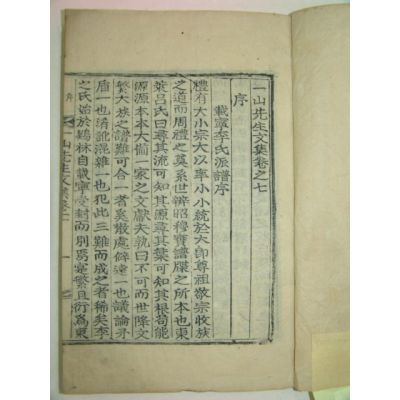 一山先生文集卷之七
序
載寧李氏派譜序
禮有大小宗大以率小小統於大師尊祖敬宗收族
之道而周禮之奠系世辨昭穆實譜牒之所本也東
萊呂氏曰尋其流可知其源尋其葉可知其根苟能
源源本本大備一家之文獻夫孰曰不可而世降文
繁大族之譜難可合一者矣散處僻遠一也議論矛
盾一也淆訛混雜一也犯此三難而成之者稀矣李
之氏始於鷄林自載寧受封而別焉寔繁且衍爲東
一山先生文集卷